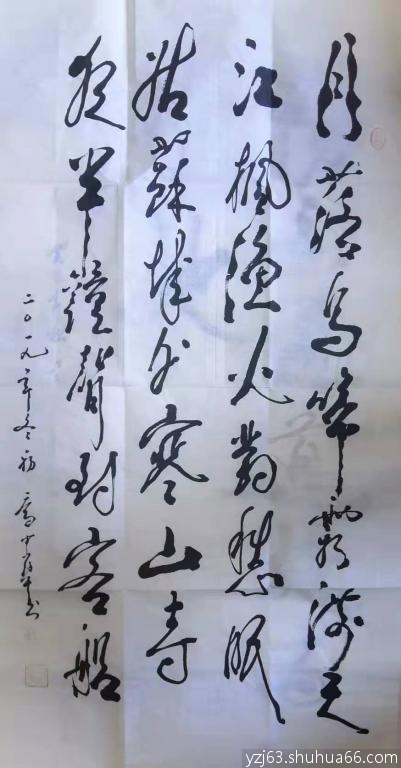 月落乌啼霜满天
江枫渔火对愁眠
姑苏城外寒山寺
夜半钟声到客船
二〇一九年冬初
yzj63.shuhua66.com